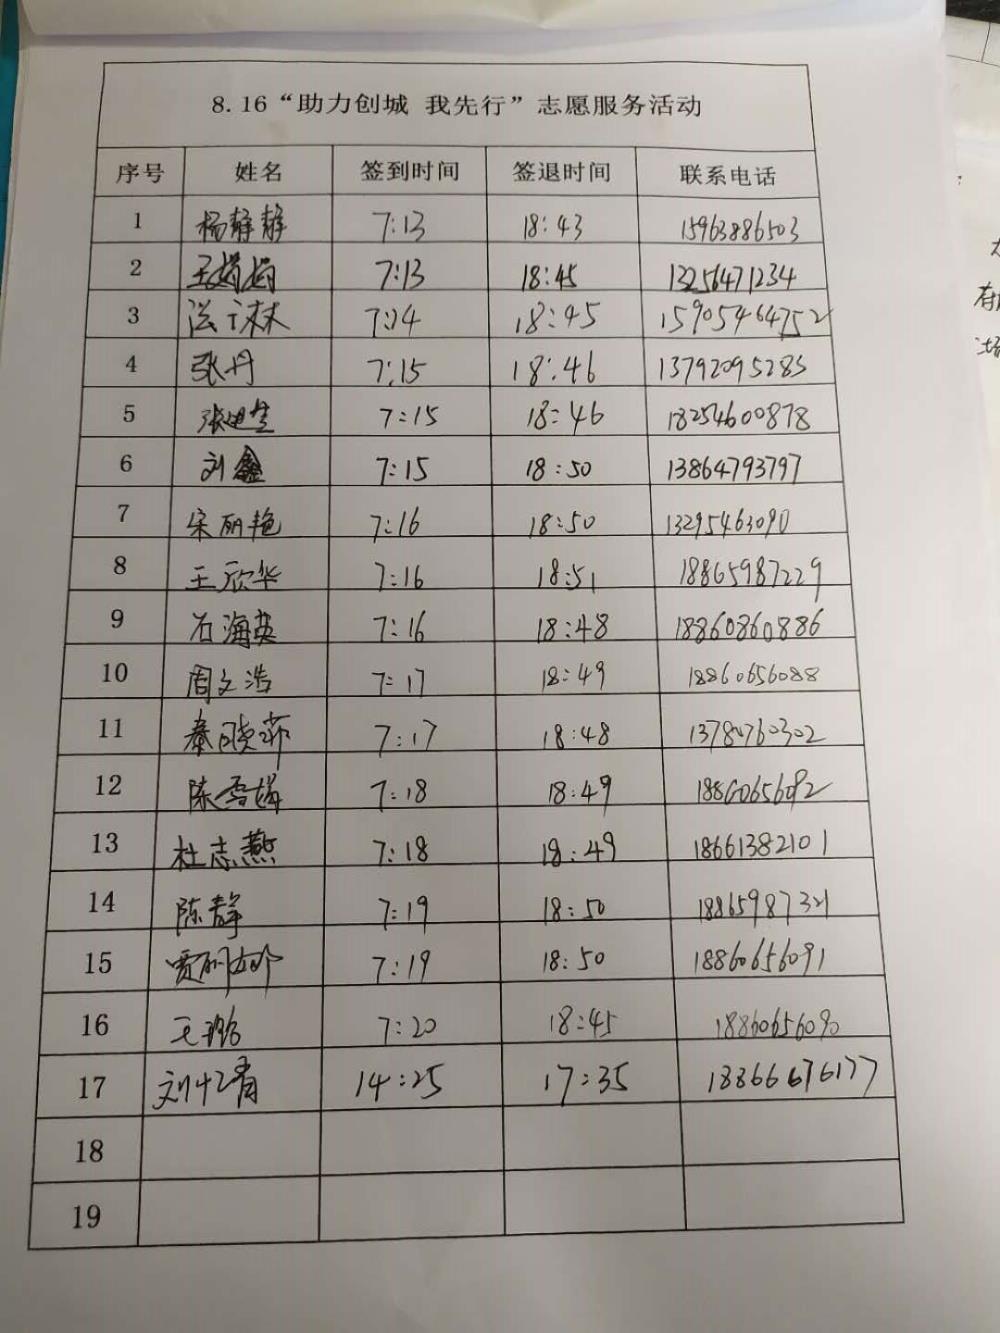 8.16“助力创城 我先行”志愿服务活动
序号 姓名 签到时间 签退时间 联系电话
1 杨静静 7:13 18:43 15963886503
2 7:13 18:45 13256471234
3 7:14 18:45 15905464752
4 张丹 7:15 18:46 13792095285
5 7:15 18:46 18254600878
6 刘鑫 7:15 18:50 13864793797
7 宋丽艳 7:16 18:50 13295463090
8 王欣华 7:16 18:51 18865987229
9 石海英 7:16 18:48 18860860886
10 周文浩 7:17 18:49 18860656088
11 秦晓菲 7:17 18:48 13780760302
12 陈雪梅 7:18 18:49 18860656092
13 杜志燕 7:18 18:49 18661382101
14 陈静 7:19 18:50 18865987321
15 7:19 18:50 18860656091
16 王璐 7:20 18:45 18860656090
17 刘忆青 14:25 17:35 18866676177
18
19